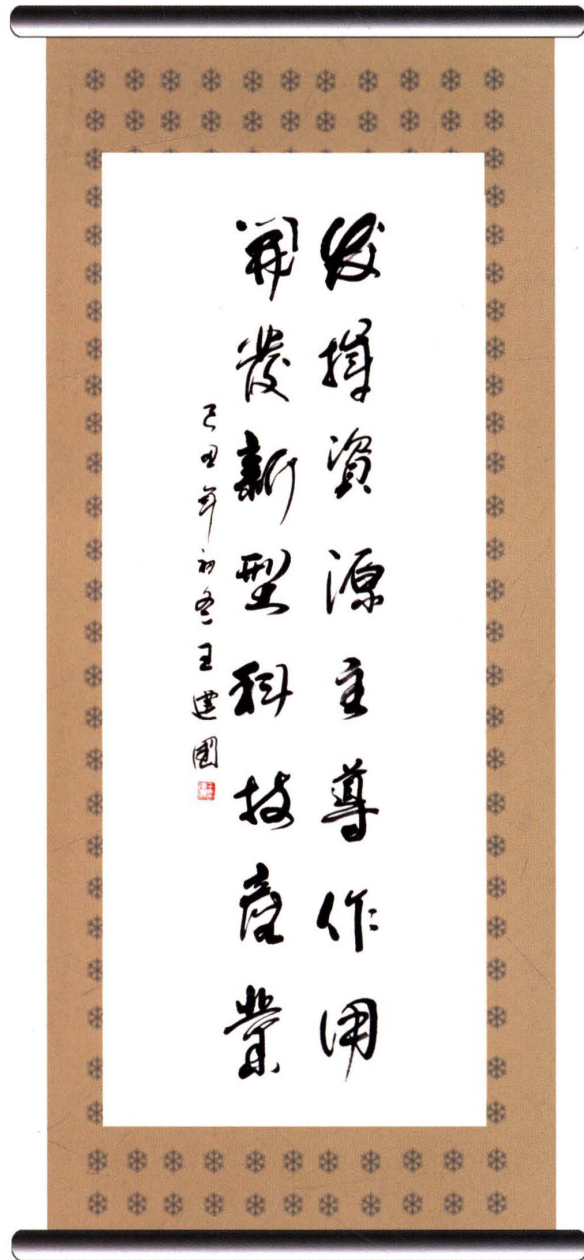 发挥資源主導作用
開發新型科技産業
己丑年初冬王建國